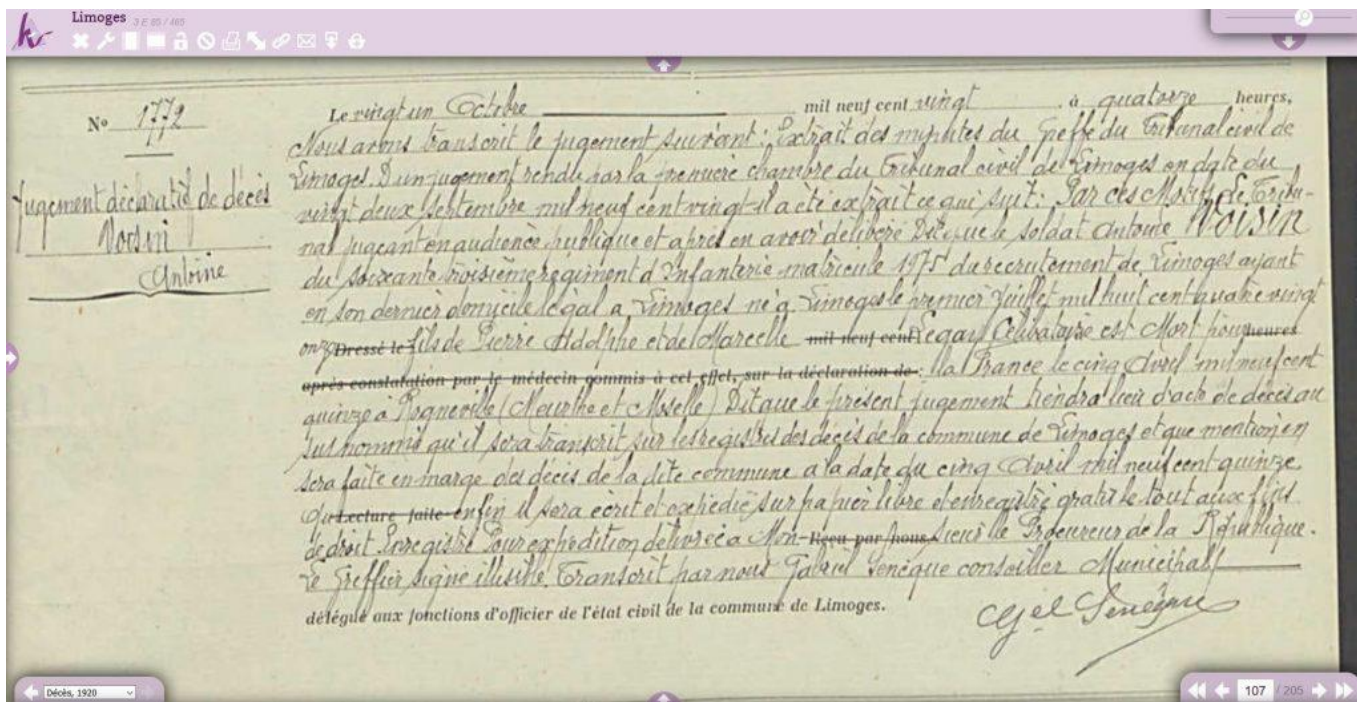 Limoges 3 E 85 / 465
N° 1772
Jugement déclaratif de décès
Voisin
Antoine
Le vingt un Octobre mil neuf cent vingt à quatorze heures,
Nous avons transcrit le jugement suivant : Extrait des minutes du Greffe du Tribunal civil de
Limoges. D'un jugement rendu par la première chambre du Tribunal civil de Limoges en date du
vingt deux Septembre mil neuf cent vingt il a été extrait ce qui suit : Par ces Motifs Le Tribu-
nal jugeant en audience publique et après en avoir délibéré Dit que le soldat Antoine VOISIN
du soixante troisième régiment d'Infanterie matricule 1975 du recrutement de Limoges ayant
en son dernier domicile légal a Limoges né a Limoges le premier Juillet mil huit cent quatre vingt
onze Dressé le fils de Pierre Adolphe et de Marcelle mil neuf cent Legay Célibataire est Mort pour heures
après constatation par le médecin commis à cet effet, sur la déclaration de : la France le cinq Avril mil neuf cent
quinze à Rogneville (Meurthe et Moselle) Dit que le présent jugement tiendra lieu d'acte de décès au
sus nommé qu'il sera transcrit sur les registres des décès de la commune de Limoges et que mention en
sera faite en marge des décès de la dite commune a la date du cinq Avril mil neuf cent quinze.
Qu Lecture faite enfin il sera écrit et expédié sur papier libre et enregistré gratis le tout aux fins
de droit Enregistré Pour expédition délivrée a Mon- Reçu par nous sieur le Procureur de la République.
Le Greffier signé illisible. Transcrit par nous Gabriel Senèque conseiller Municipal
délégué aux fonctions d'officier de l'état civil de la commune de Limoges.
Gel Senèque
Décès, 1920
107 / 205